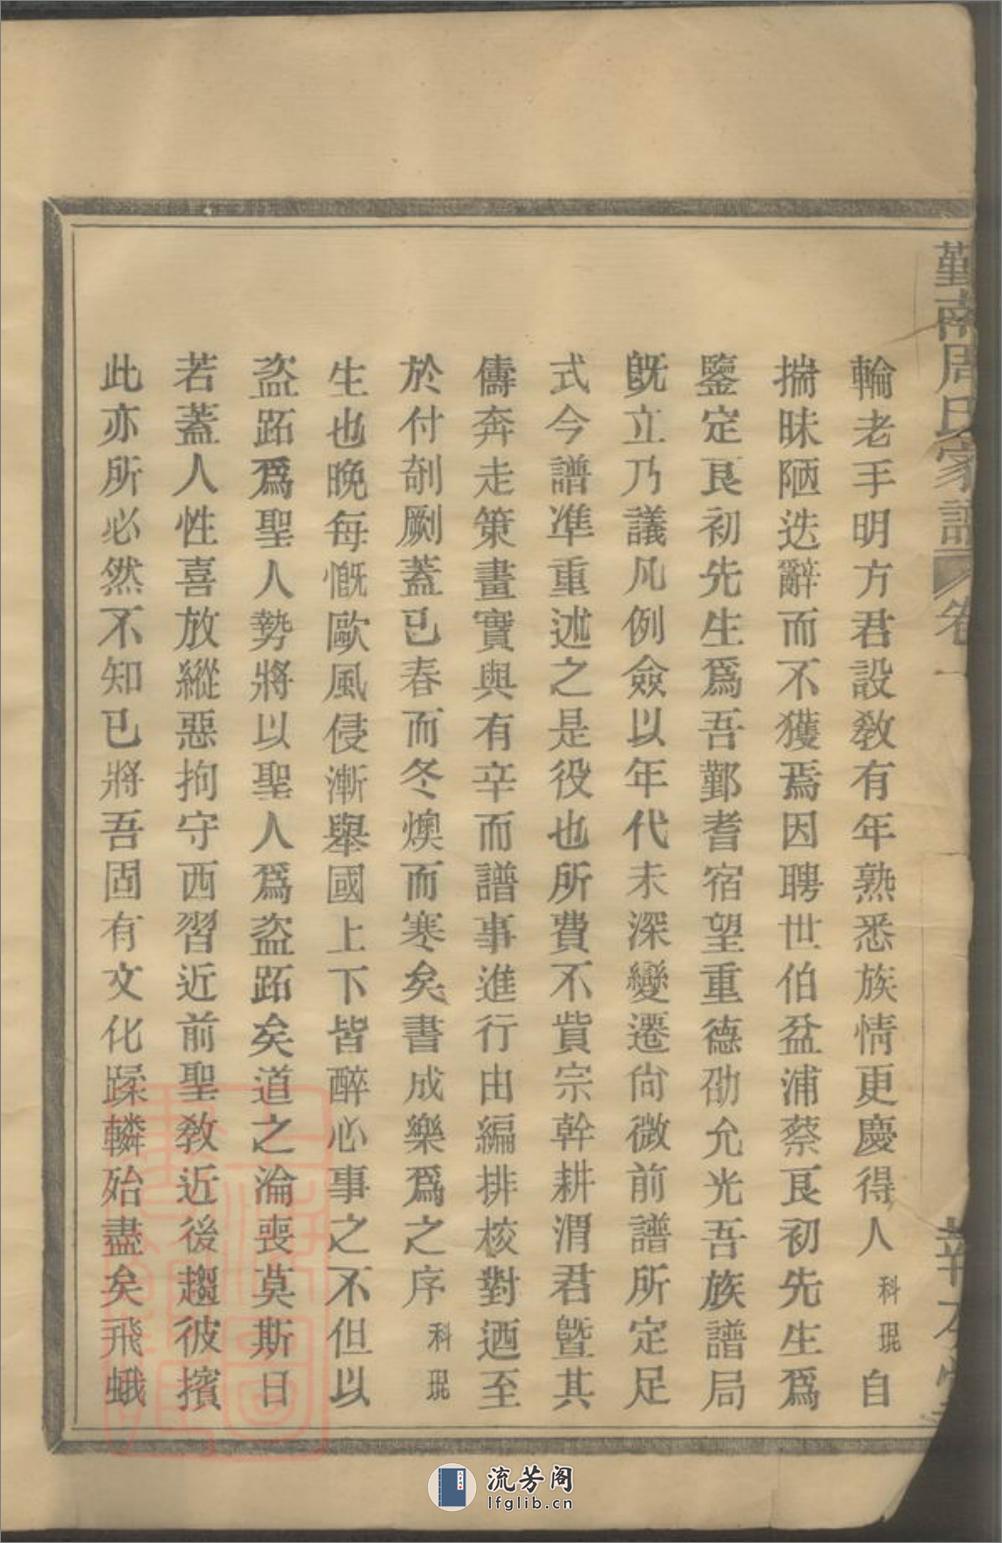 鄞南周氏家譜 卷一
輪老手明方君設敎有年熟悉族情更慶得人科琨自
揣昧陋迭辭而不獲焉因聘世伯盆浦蔡艮初先生爲
鑒定艮初先生爲吾鄞耆宿望重德劭允光吾族譜局
旣立乃議凡例僉以年代未深變遷尙微前譜所定足
式今譜準重述之是役也所費不貲宗幹耕渭君曁其
儔奔走策畫實與有辛而譜事進行由編排校對迺至
於付剞劂蓋已春而冬燠而寒矣書成樂爲之序科琨
生也晚每慨歐風侵漸舉國上下皆醉心事之不但以
盜跖爲聖人勢將以聖人爲盜跖矣道之淪喪莫斯曰
若蓋人性喜放縱惡拘守西習近前聖敎近後趨彼擯
此亦所必然不知已將吾固有文化蹂轔殆盡矣飛蛾
流芳阁
lfglib.cn